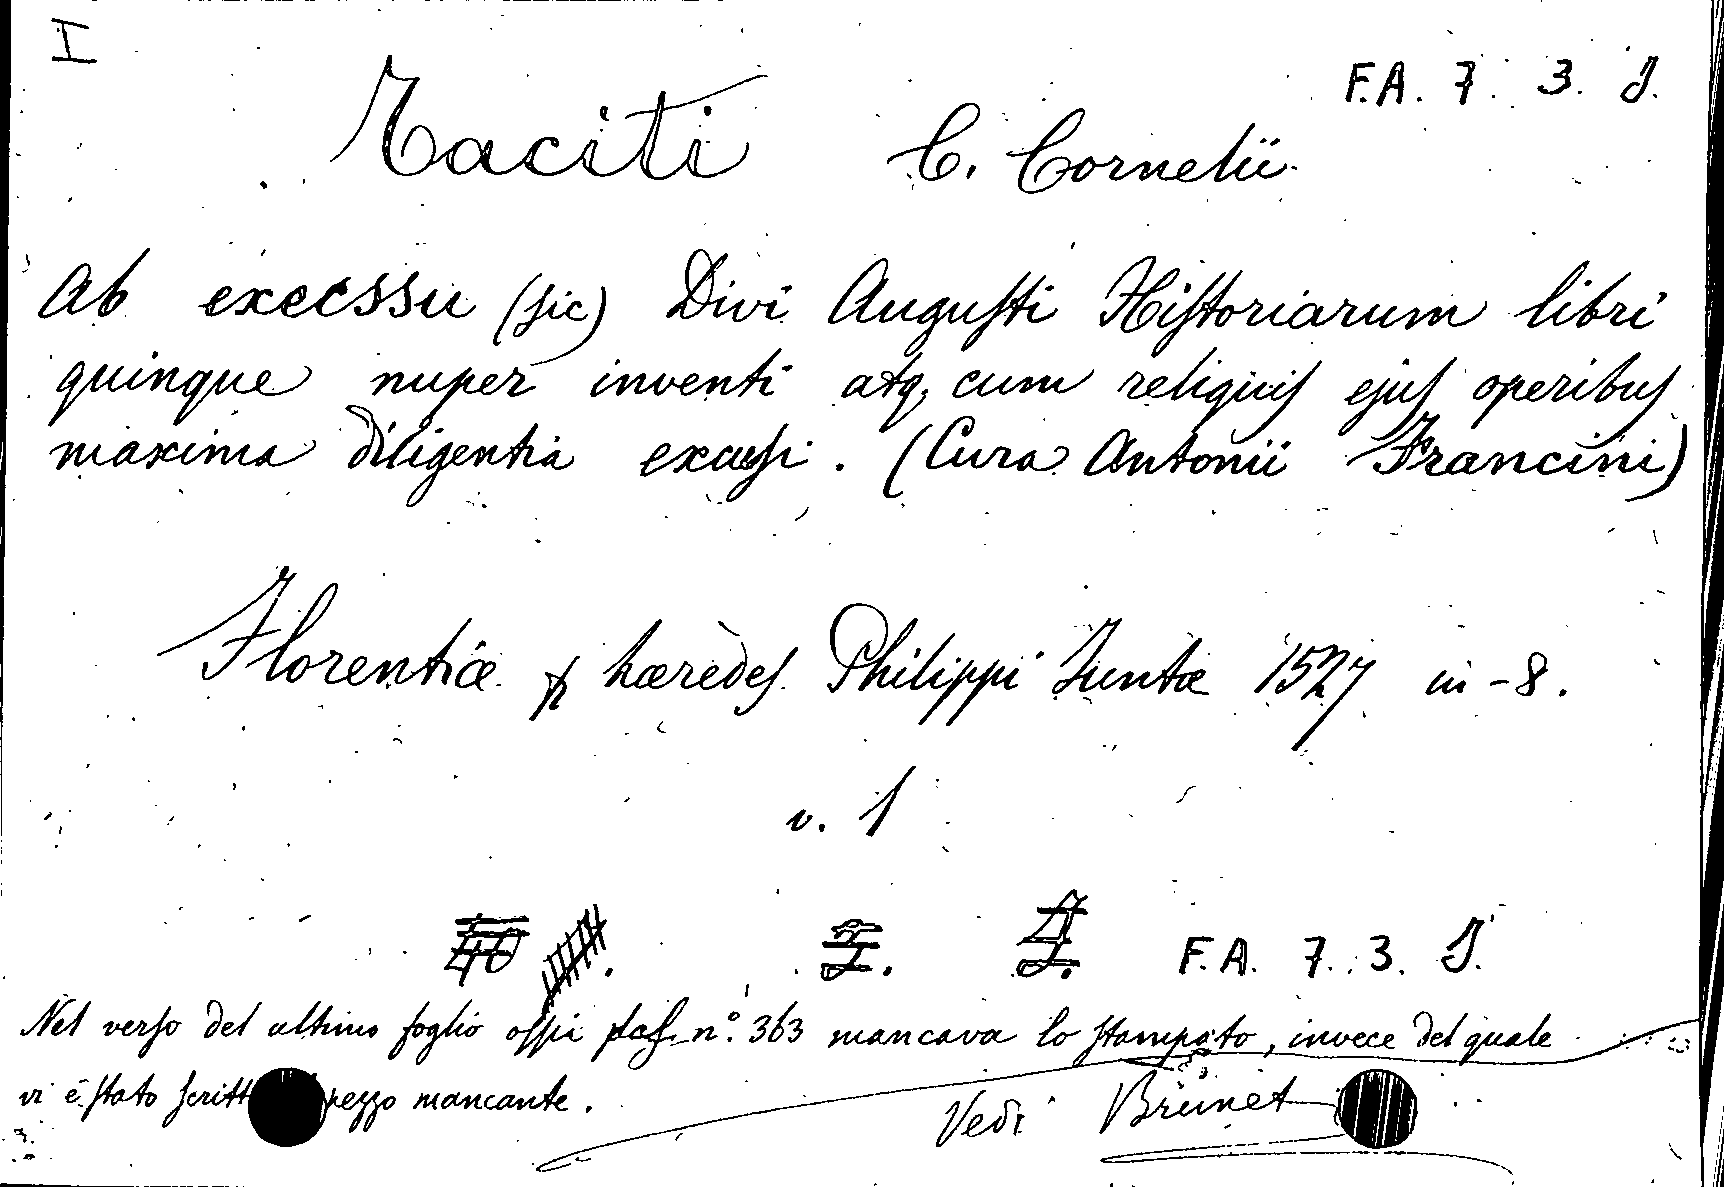 I
F.A. 7. 3. J.
Taciti C. Cornelii
Ab execssu (sic) Divi Augusti Historiarum libri
quinque nuper inventi atq, cum reliquis ejus operibus
maxima diligentia excussi. (Cura Antonii Francini)
Florentiæ hæredes Philippi Juntæ 1527 in-8.
v. 1
F.A. 7. 3. J.
Nel verso del ultimo foglio ossia n.º 363 mancava lo stampato, invece del quale
vi è stato scritt pezzo mancante.
Vedi Brunet